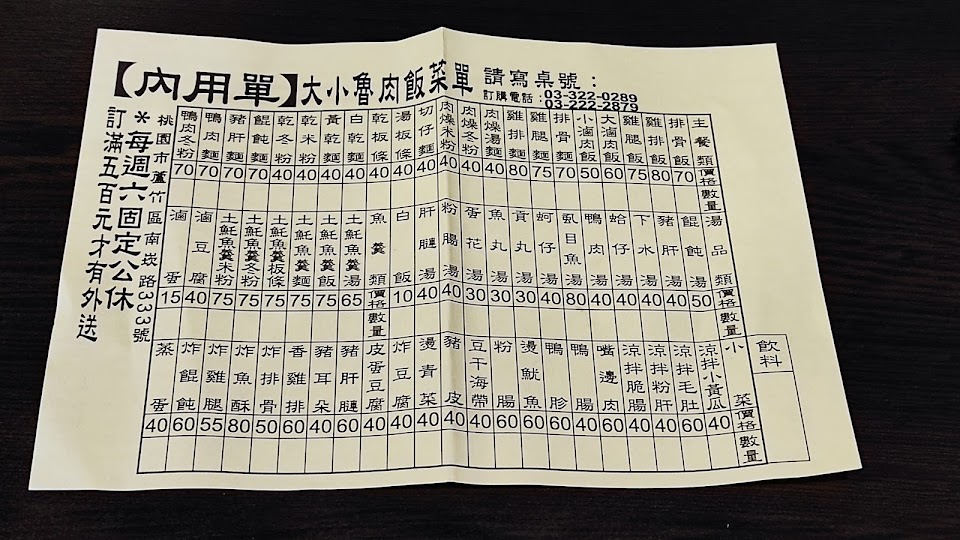 【內用單】大小魯肉飯菜單
請寫桌號：
訂購電話：03-322-0289
03-222-2879
主餐類 價格 數量
排骨飯 70
雞排飯 80
雞腿飯 75
大滷肉飯 60
小滷肉飯 50
排骨麵 70
雞腿麵 75
雞排麵 80
肉燥湯麵 40
肉燥冬粉 40
肉燥米粉 40
切仔麵 40
湯板條 40
乾板條 40
白乾麵 40
黃乾麵 40
乾米粉 40
乾冬粉 40
餛飩麵 70
豬肝麵 70
鴨肉麵 70
鴨肉冬粉 70
湯品類 價格 數量
餛飩湯 50
豬肝湯 40
下水湯 40
蛤仔湯 40
鴨肉湯 40
虱目魚湯 80
蚵仔湯 40
貢丸湯 30
魚丸湯 30
蛋花湯 30
粉腸湯 40
肝膶湯 40
白飯 10
魚羹類 價格 數量
土魠魚羹湯 65
土魠魚羹飯 75
土魠魚羹麵 75
土魠魚羹板條 75
土魠魚羹冬粉 75
土魠魚羹米粉 75
滷豆腐 40
滷蛋 15
飲料
小菜 價格 數量
涼拌小黃瓜 40
涼拌毛肚 60
涼拌粉肝 40
涼拌脆腸 40
嘴邊肉 40
鴨腸 40
鴨胗 40
燙魷魚 60
粉腸 60
豆干海帶 40
豬皮 40
燙青菜 40
炸豆腐 40
皮蛋豆腐 40
豬肝膶 60
豬耳朵 40
香雞排 60
炸排骨 50
炸魚酥 80
炸雞腿 55
炸餛飩 60
蒸蛋 40
桃園市蘆竹區南崁路333號
＊每週六固定公休
訂滿五百元才有外送